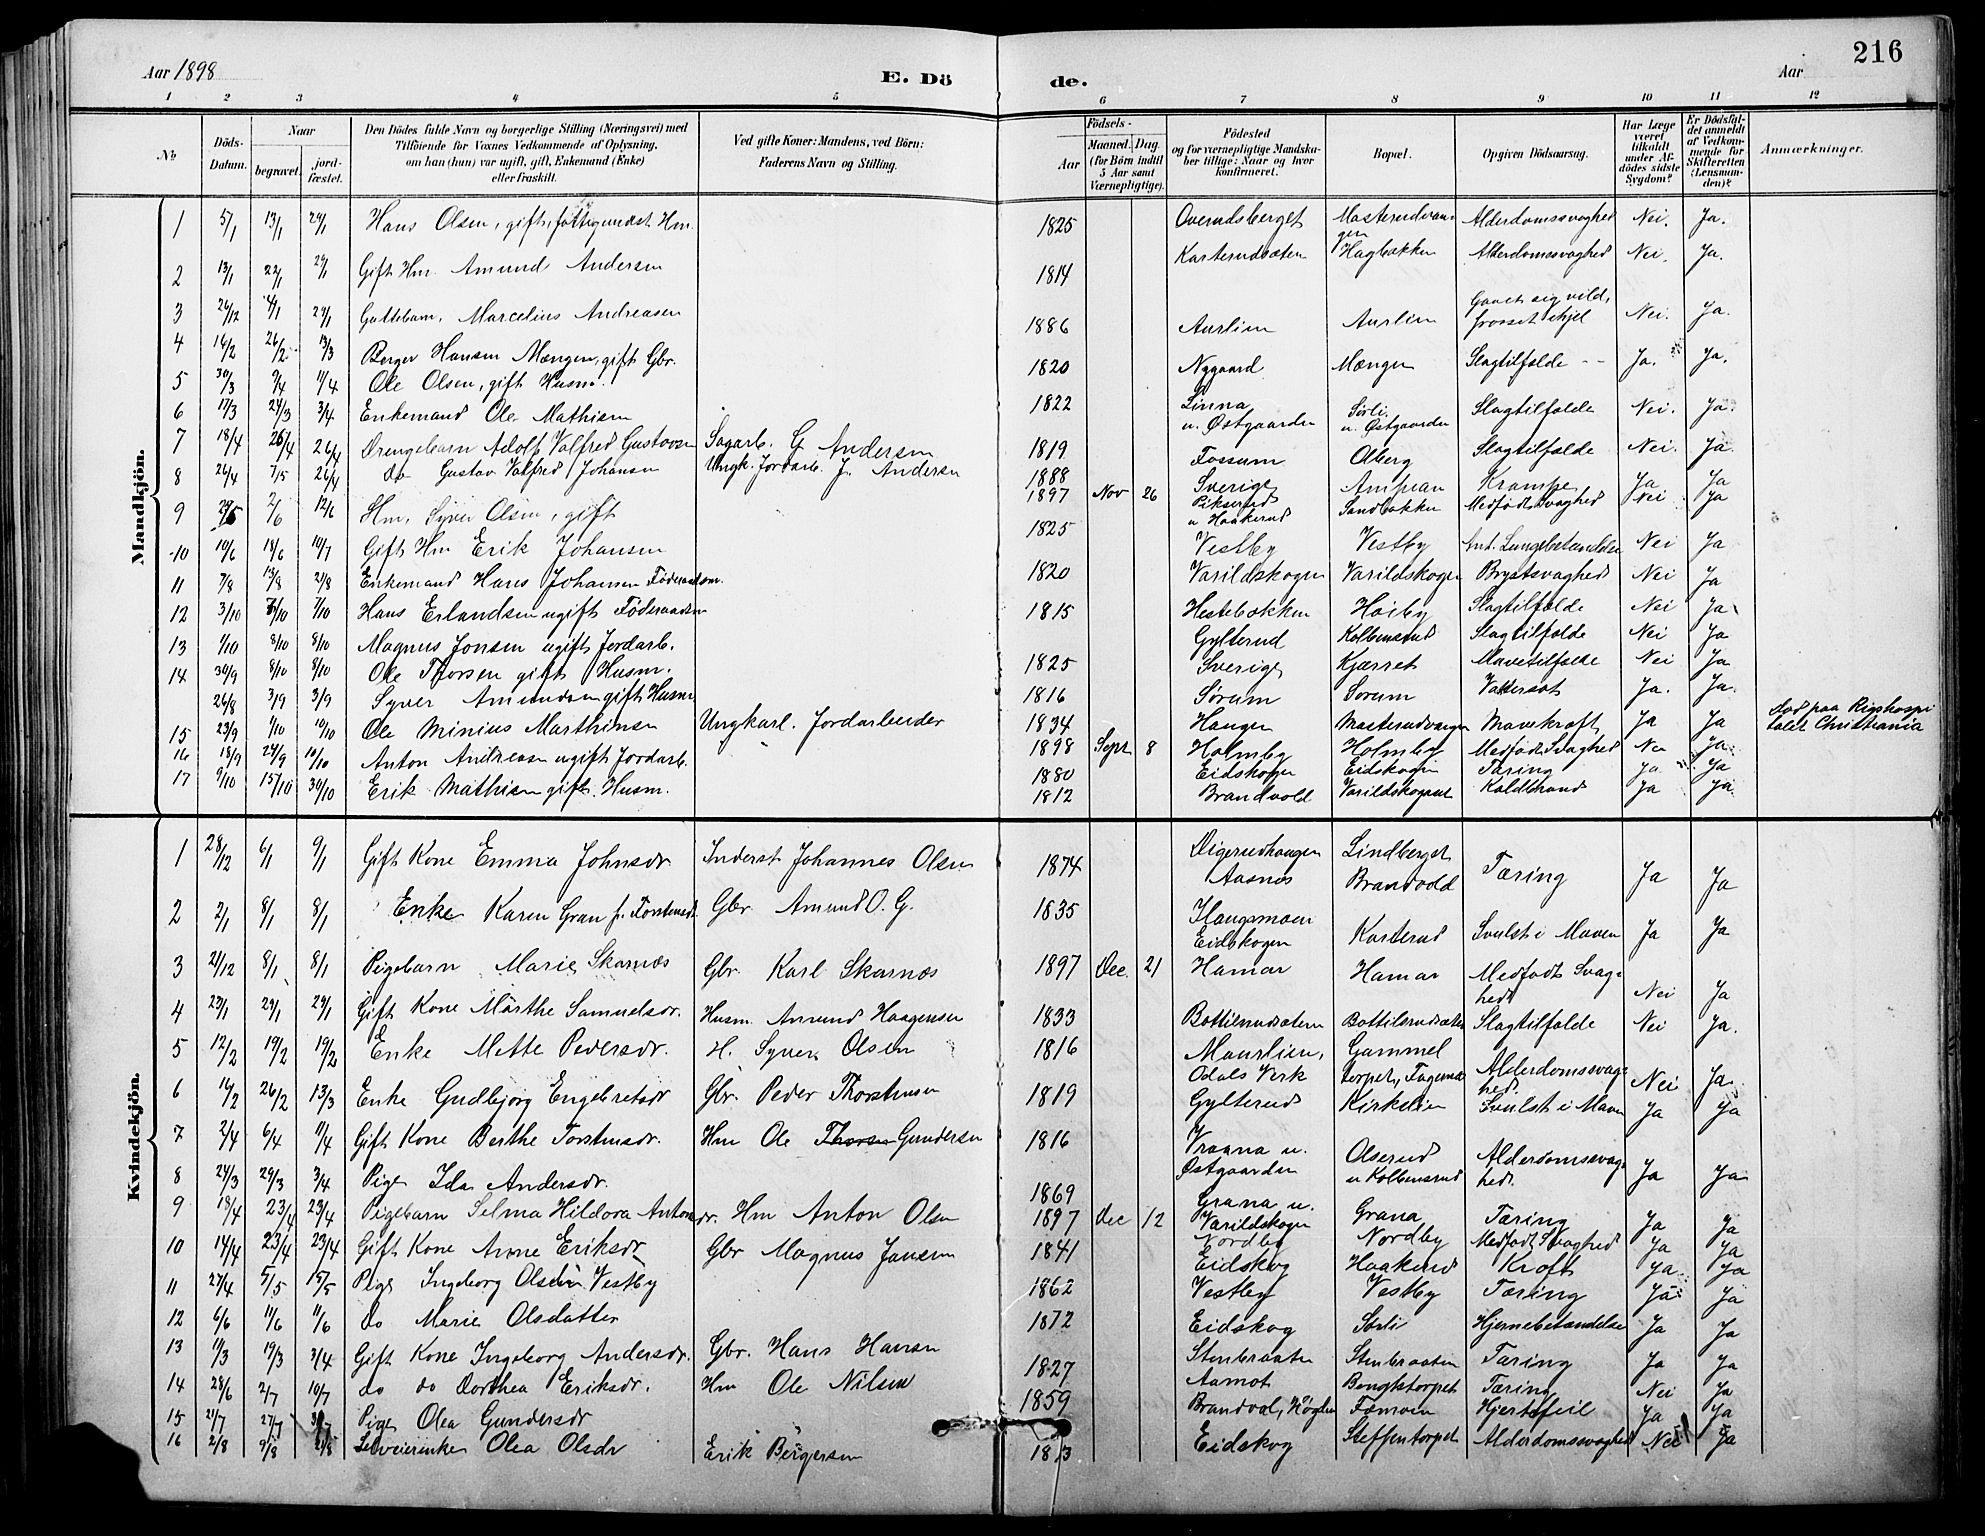 Aar 1898
E. Dö
de.
Aar
216
1 2 3 4 5 6 7 8 9 10 11 12
No
Döds-Datum.
Naar
begravet.
jordfæstet.
Den Dödes fulde Navn og borgerlige Stilling (Næringsvei) med
Tilföiende for Voxnes Vedkommende af Oplysning,
om han (hun) var ugift, gift, Enkemand (Enke)
eller fraskilt.
Ved gifte Koner: Mandens, ved Börn:
Faderens Navn og Stilling.
Födsels-
Aar
Maaned. Dag.
(for Börn indtil
5 Aar samt
Værnepligtige).
Födested
og for værnepligtige Mandska-
ber tillige: Naar og hvor
konfirmeret.
Bopæl.
Opgiven Dödsaarsag.
Har Læge
været
tilkaldt
under Af-
dödes sidste
Sygdom?
Er Dödsfal-
det anmeldt
af Vedkom-
mende for
Skifteretten
(Lensman-
den)?
Anmærkninger.
Mandkjön.
1 5/1 13/1 29/1 Hans Olsen, gift, fattigundst. Hm. 1825 Overudsberget Masterudvangen Alderdomssvaghed Nei. Ja.
2 13/1 22/1 29/1 Gift Hm. Amund Andersen 1814 Karterudsæten Hagbakken Alderdomssvaghed Nei. Ja.
3 26/12 4/1 29/1 Guttebarn, Marcelius Andreasen 1886 Aurlien Aurlien Gaaet sig vild, frosset ihjel Nei. Ja.
4 14/2 26/2 13/3 Berger Hansen Mængen, gift Gbr. 1820 Nygaard Mængen Slagtilfælde Ja. Ja.
5 30/3 9/4 11/4 Ole Olsen, gift Husm. 1822 Linna u. Østgaarden Sørli u. Østgaarden Slagtilfælde Nei. Ja.
6 17/3 24/3 3/4 Enkemand Ole Mathisen 1819 Fossum Aaberg Slagtilfælde Nei. Ja.
7 18/4 26/4 26/4 Drengebarn Adolf Valfred Gustavsen Sagarb. G Andersen 1888 Sverige Krampe Ja Ja
8 26/4 7/5 26/4 do Gustav Valfred Johansen Ungk. Jordarb. J. Andersen 1897 Nov 26 Pikserud u Haakerud Sandbakken Medfødt Svaghed Nei Ja
9 2/6 12/6 Hm. Syver Olsen, gift 1825 Vestby Vestby Lungebetændelse Nei Ja
10 10/6 18/6 10/7 Gift Hm Erik Johansen 1820 Varildskogen Varildskogen Brystsvaghed Nei Ja
11 7/8 13/8 21/8 Enkemand Hans Johansen Føderaadsm. 1815 Hestebækken Høiby Slagtilfælde Nei Ja
12 3/10 7/10 Hans Erlandsen ugift Føderaadsm Gylterud Kolbensrud Slagtilfælde Nei Ja
13 1/10 8/10 8/10 Magnus Jonsen ugift Jordarb. 1825 Sverige Kjærret Mavetilfælde Nei Ja
14 30/9 8/10 8/10 Ole Thorsen gift Husm. 1816 Sørum Sørum Vattersot Ja. Ja.
26/8 3/9 3/9 Syver Amundsen gift Husm 1834 Haugen Masterudvangen Mavekræft Ja Ja død paa Rigshospitalet Christiania
15 23/9 1/10 10/10 Ole Minius Marthinsen Ungkarl. Jordarbeider 1898 Sept 8 Holmby Holmby Medfødt Svaghed Nei Ja
16 18/9 24/9 10/10 Anton Andreasen ugift Jordarb. 1880 Eidskogen Eidskogen Tæring Ja Ja
17 9/10 15/10 30/10 Erik Mathisen gift Husm. 1812 Brandvold Varildskogsæt Koldbrand Ja Ja
Kvindekjön.
1 28/12 6/1 9/1 Gift Kone Emma Johnsdr. Inderst Johannes Olsen 1874 Digerudhaugen Aasnes Lindberget Brandvold Tæring Ja Ja
2 2/1 8/1 8/1 Enke Karen Gran f. Torstensdr. Gbr Amund O. G. 1835 Haugsmoen Eidskogen Karterud Svulst i Maven Ja Ja
3 21/12 8/1 8/1 Pigebarn Marie Skarnæs Gbr. Karl Skarnæs 1897 Dec. 21 Hamar Hamar Medfødt Svaghed Nei Ja
4 23/1 29/1 29/1 Gift Kone Marthe Samuelsdr. Husm. Amund Haagensen 1833 Bottilsrudsæteren Bottilsrudsæter Slagtilfælde Nei Ja.
5 12/2 19/2 19/2 Enke Mette Pedersdr. H. Syver Olsen 1816 Maurlien, Odals Verk Gammeltorpet, Fagernæs Alderdomssvaghed Nei Ja
6 14/2 26/2 13/3 Enke Gudbjørg Engebretsdr Gbr. Peder Thorstensen 1819 Gylterud Kirkelien Svulst i Maven Ja Ja
7 2/4 6/4 11/4 Gift Kone Berthe Torstensdr. Hm Ole Thorsen Gundersen 1816 Vraana u. Østgaarden Olserud u Kolbensrud Alderdomssvaghed Ja Ja
8 24/3 29/3 3/4 Pige Ida Andersdr. 1869 Grana u. Varildskogen Grana Tæring Ja Ja
9 18/4 23/4 23/4 Pigebarn Selma Hildora Antonsdr. Hm Anton Olsen 1897 Dec 12 Nordby Nordby Medfødt Svaghed Ja Ja
10 14/4 23/4 23/4 Gift Kone Anne Eriksdr Gbr Magnus Jansen 1841 Eidskog Haakerud Kræft Ja Ja
11 27/4 5/5 15/5 Pige Ingeborg Olsdtr Vestby 1862 Vestby Vestby Tæring Ja Ja
12 6/6 11/6 11/6 do Marie Olsdatter 1872 Eidskog Sørli Hjernebetændelse Ja Ja
13 11/3 19/3 3/4 Gift Kone Ingeborg Andersdr. Gbr. Hans Hansen 1827 Stenbraaten Stenbraaten Tæring Ja Ja
14 28/6 2/7 10/7 do do Dorthea Eriksdr. Hm Ole Nilsen 1859 Aamot Bengktorpet Tæring Nei Ja
15 21/7 27/7 Pige Olea Gundersdr Brandval, Føgelen Tæmoen Hjertefeil Ja Ja
16 2/8 9/8 21/8 Olea Olsdr Erik Bergersen Eidskog Steffentorpet Alderdomssvaghed Nei Ja